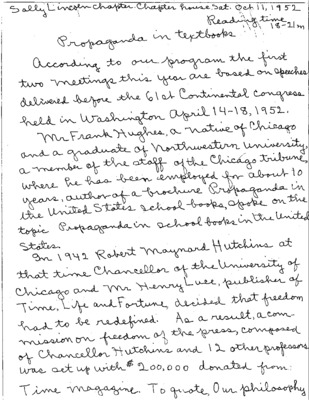 Sally Lincoln Chapter Chapter house Sat. Oct 11, 1952
Reading time
18-21m
Propaganda in textbooks
According to our program the first
two meetings this year are based on speeches
delivered before the 61st Continental Congress
held in Washington April 14-18, 1952.
Mr Frank Hughes, a native of Chicago
and a graduate of Northwestern University,
a member of the staff of the Chicago tribune,
where he has been employed for about 10
years, author of a brochure Propaganda in
the United States school books, spoke on the
topic Propaganda in school books in the United
States.
In 1942 Robert Maynard Hutchins at
that time Chancellor of the University of
Chicago and Mr Henry Luce, publisher of
Time, Life and Fortune, decided that freedom
had to be redefined. As a result, a com-
mission on freedom of the press, composed
of Chancellor Hutchins and 12 other professors
was set up with $200,000 donated from
Time magazine. To quote, Our philosophy